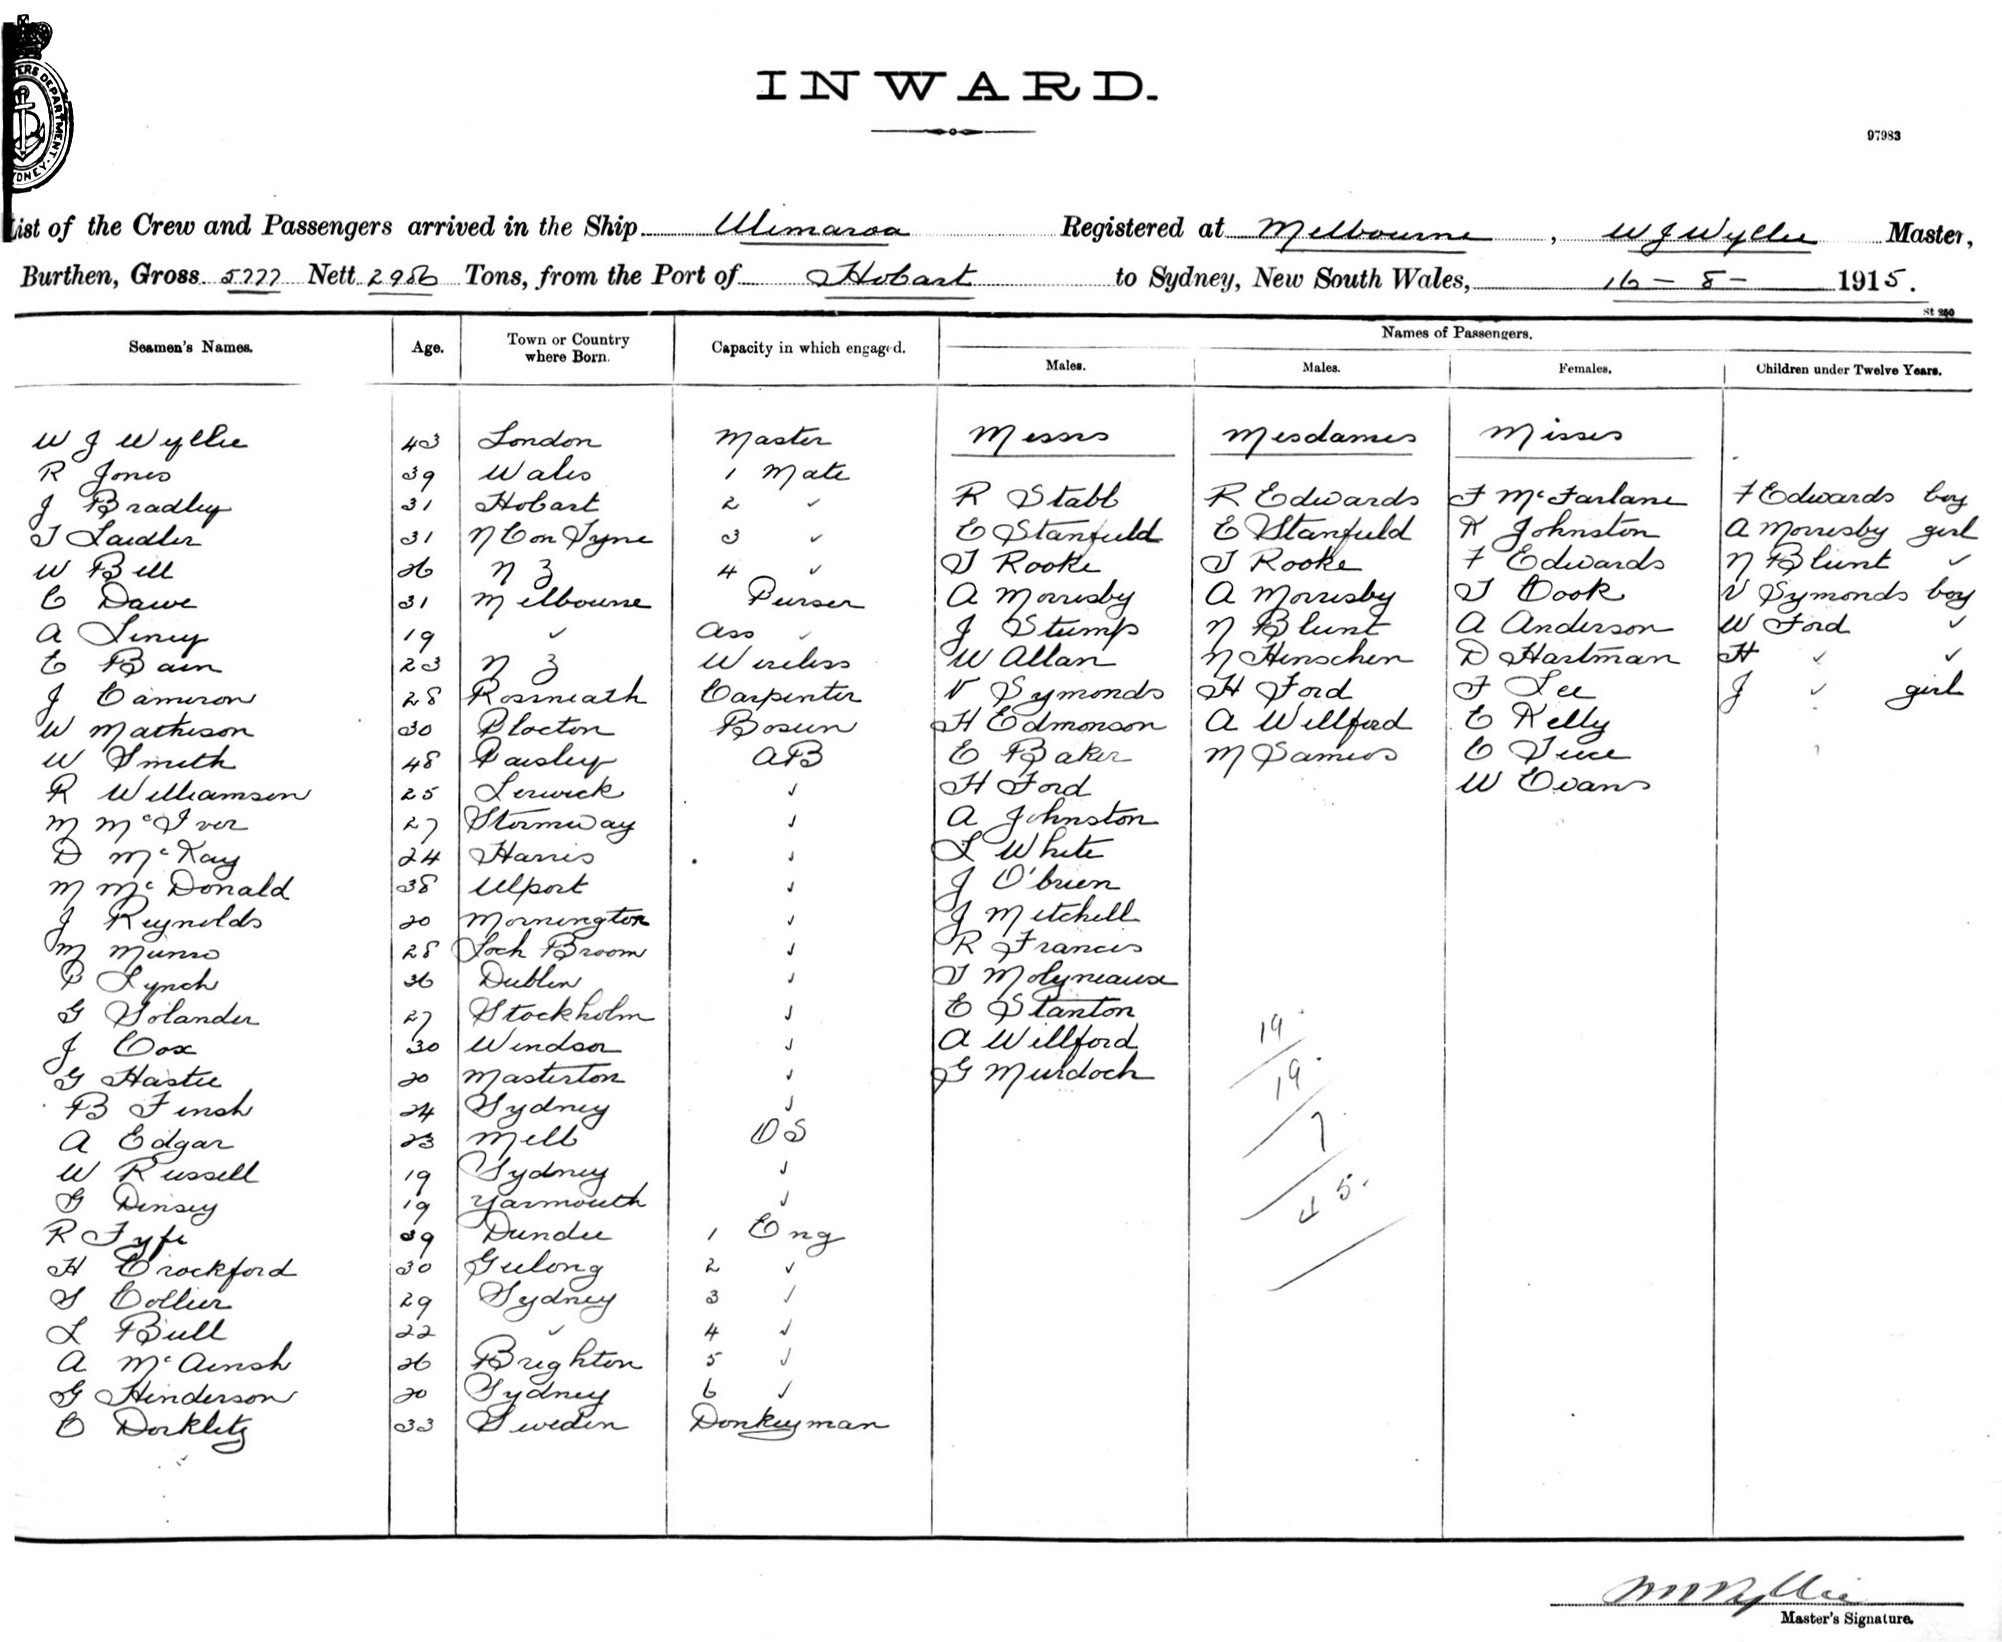 INWARD.
97983
List of the Crew and Passengers arrived in the Ship Ulimaroa Registered at Melbourne, W J Wyllie Master,
Burthen, Gross 5777 Nett 2986 Tons, from the Port of Hobart to Sydney, New South Wales, 16 - 8 - 1915.
St 250
Seamen's Names. Age. Town or Country where Born. Capacity in which engaged. Names of Passengers.
Males. Males. Females. Children under Twelve Years.
W J Wyllie 43 London Master Messrs Mesdames Misses
R Jones 39 Wales 1 Mate
J Bradley 31 Hobart 2 ✓ R Stabb R Edwards F McFarlane F Edwards boy
T Laidler 31 N C on Tyne 3 ✓ E Stanfield E Stanfield K Johnston A Morrisby girl
W Bill 26 N Z 4 ✓ T Rooke T Rooke F Edwards N Blunt ✓
C Dawe 31 Melbourne Purser A Morrisby A Morrisby T Cook V Symonds boy
A Liney 19 ✓ Ass ✓ J Stump N Blunt A Anderson W Ford ✓
E Bain 23 N Z Wireless W Allan N Henschen D Hartman H ✓ ✓
J Cameron 28 Rosneath Carpenter V Symonds H Ford F Lee J ✓ girl
W Mathison 30 Plocton Bosun H Edmonson A Willford E Kelly
W Smith 48 Paisley AB E Baker M Samios C Tuce
R Williamson 25 Lerwick ✓ H Ford W Evans
M McIver 27 Stornway ✓ A Johnston
D McKay 24 Harris ✓ L White
M McDonald 38 Ulport ✓ J O'brien
J Reynolds 20 Mornington ✓ J Mitchell
M Munro 28 Loch Broom ✓ R Francis
P Lynch 36 Dublin ✓ T Molyneaux
G Solander 27 Stockholm ✓ E Stanton
J Cox 30 Windsor ✓ A Willford
G Hastie 20 Masterton ✓ G Murdoch
B Finsh 24 Sydney ✓
A Edgar 23 Melb OS
W Russell 19 Sydney ✓
G Dinsey 19 Yarmouth ✓
R Fyfe 39 Dundee 1 Eng
H Crockford 30 Geelong 2 ✓
S Collier 29 Sydney 3 ✓
L Bull 22 ✓ 4 ✓
A McAinsh 26 Brighton 5 ✓
G Henderson 20 Sydney 6 ✓
C Dorklitz 33 Sweden Donkeyman
19
19
7
5
Master's Signature.